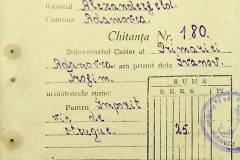 Raionul Alexanderfeld.
Comuna Adamovca.
Chitanța Nr. 180.
Subsemnatul Casier al Primariei
Adamovca am primit dela Ivanov.
Trofim.
următoarele sume:
SUMA
S. K. K. S.
Pentru Impozit
vie de
strugur.
25